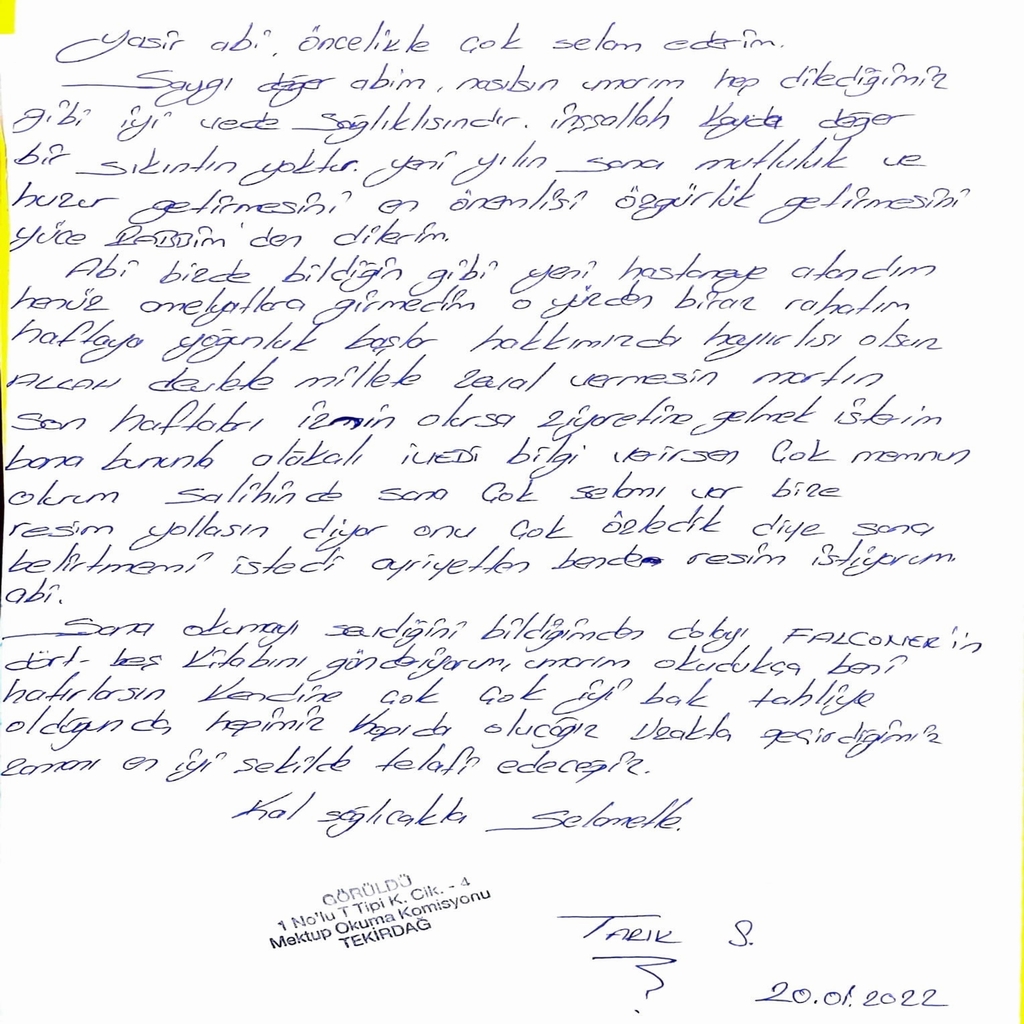 Yasir abi, öncelikle çok selam ederim.
Saygı değer abim, nasılsın umarım hep dilediğimiz
gibi iyi vede sağlıklısındır. inşsallah kayda değer
bir sıkıntın yoktur. yeni yılın sana mutluluk ve
huzur getirmesini en önemlisi özgürlük getirmesini
yüce RABBİM'den dilerim.
Abi bizde bildiğin gibi yeni hastaneye atandım
henüz ameliyatlara girmedim o yüzden biraz rahatım
haftaya yoğunluk başlar hakkımızda hayırlısı olsun
ALLAH devlete millete zeval vermesin martın
son haftaları iznin olursa ziyaretine gelmek isterim
bana bununla alakalı İVEDİ bilgi verirsen çok memnun
olurum salihinde sana çok selamı var bize
resim yollasın diyor onu çok özledik diye sana
belirtmemi istedi ayriyetten bende resim istiyorum
abi.
Sana okumayı sevdiğini bildiğimden dolayı FALCONER'in
dört-beş kitabını gönderiyorum, umarım okudukça beni
hatırlarsın kendine çok çok iyi bak tahliye
olduğunda hepimiz kapıda olucağız uzakta geçirdiğimiz
zamanı en iyi şekilde telafi edeceğiz.
Kal sağlıcakla Selametle.
GÖRÜLDÜ
1 No'lu T Tipi K. Cik. - 4
Mektup Okuma Komisyonu
TEKİRDAĞ
TARIK S.
20.01.2022